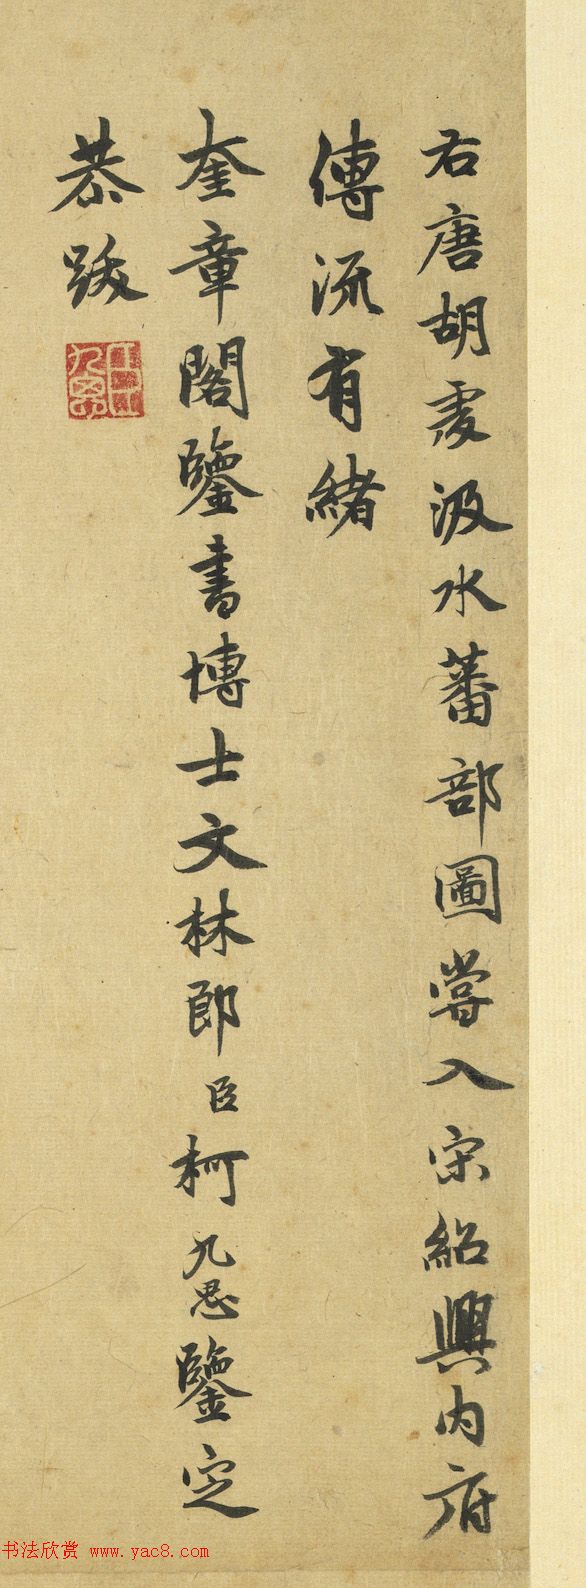 右唐胡虔汲水蕃部圖嘗入宋紹興內府
傳流有緒
奎章閣鑒書博士文林郎臣柯九思鑒定
恭跋
書法欣赏 www.yac8.com